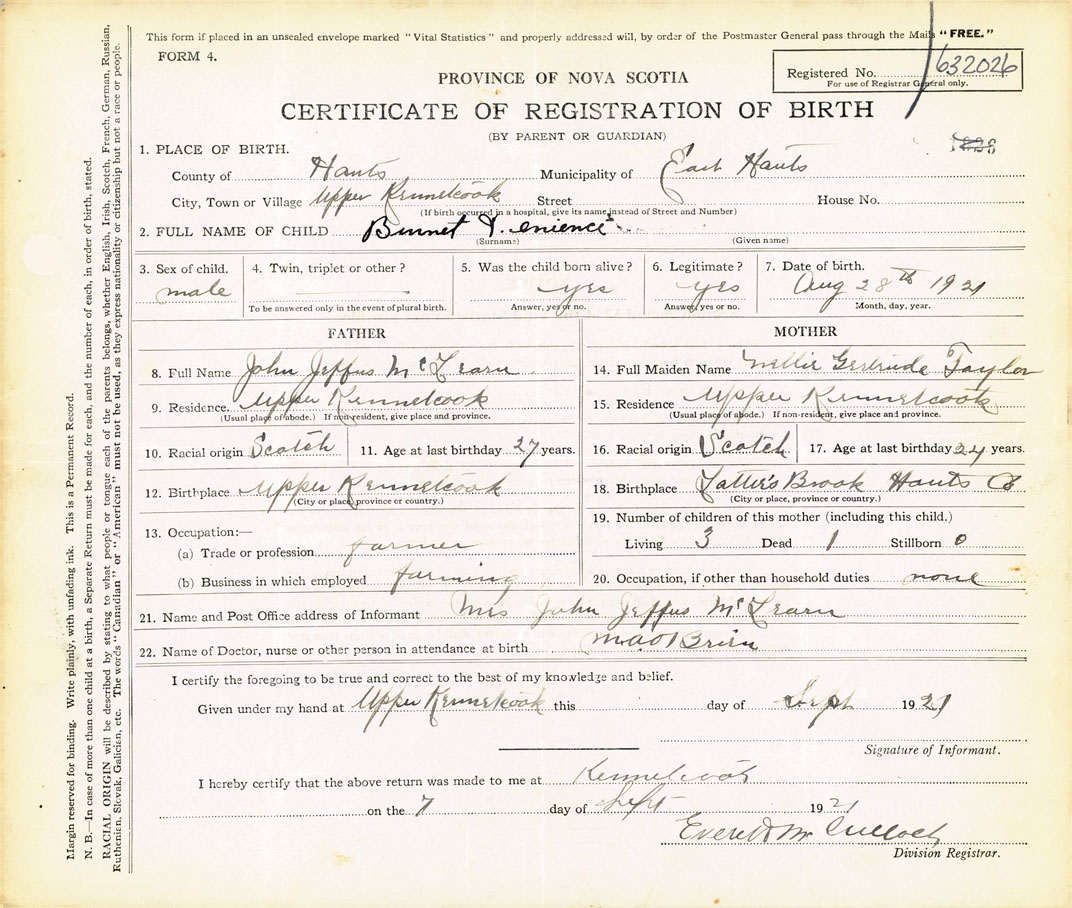 This form if placed in an unsealed envelope marked "Vital Statistics" and properly addressed will, by order of the Postmaster General pass through the Mails "FREE."
FORM 4.
Registered No. 632026
For use of Registrar General only.
PROVINCE OF NOVA SCOTIA
CERTIFICATE OF REGISTRATION OF BIRTH
(BY PARENT OR GUARDIAN)
1. PLACE OF BIRTH.
County of Hants Municipality of East Hants
City, Town or Village Upper Kennetcook Street House No.
(If birth occurred in a hospital, give its name instead of Street and Number)
2. FULL NAME OF CHILD
(Surname) (Given name)
3. Sex of child. male
4. Twin, triplet or other?
To be answered only in the event of plural birth.
5. Was the child born alive? yes
Answer, yes or no.
6. Legitimate? yes
Answer, yes or no.
7. Date of birth. Aug 28th 1921
Month, day, year.
FATHER
8. Full Name John Jeffus McLearn
9. Residence. Upper Kennetcook
(Usual place of abode.) If non-resident, give place and province.
10. Racial origin Scotch 11. Age at last birthday 27 years.
12. Birthplace Upper Kennetcook
(City or place, province or country.)
13. Occupation:—
(a) Trade or profession farmer
(b) Business in which employed farming
MOTHER
14. Full Maiden Name Nellie Gertrude Taylor
15. Residence Upper Kennetcook
(Usual place of abode.) If non-resident, give place and province.
16. Racial origin Scotch 17. Age at last birthday 24 years.
18. Birthplace Lattie's Brook Hants Co
(City or place, province or country.)
19. Number of children of this mother (including this child.)
Living 3 Dead 1 Stillborn 0
20. Occupation, if other than household duties none
21. Name and Post Office address of Informant Mrs John Jeffus McLearn
22. Name of Doctor, nurse or other person in attendance at birth
I certify the foregoing to be true and correct to the best of my knowledge and belief.
Given under my hand at Upper Kennetcook this day of Sept 1921
Signature of Informant.
I hereby certify that the above return was made to me at Kennetcook
on the 7 day of Sept 1921
Everett McCulloch
Division Registrar.
Margin reserved for binding. Write plainly, with unfading ink. This is a Permanent Record.
N. B.—In case of more than one child at a birth, a Separate Return must be made for each, and the number of each, in order of birth, stated.
RACIAL ORIGIN will be described by stating to what people or tongue each of the parents belongs, whether English, Irish, Scotch, French, German, Russian,
Ruthenian, Slovak, Galician, etc. The words "Canadian" or "American" must not be used, as they express nationality or citizenship but not a race or people.